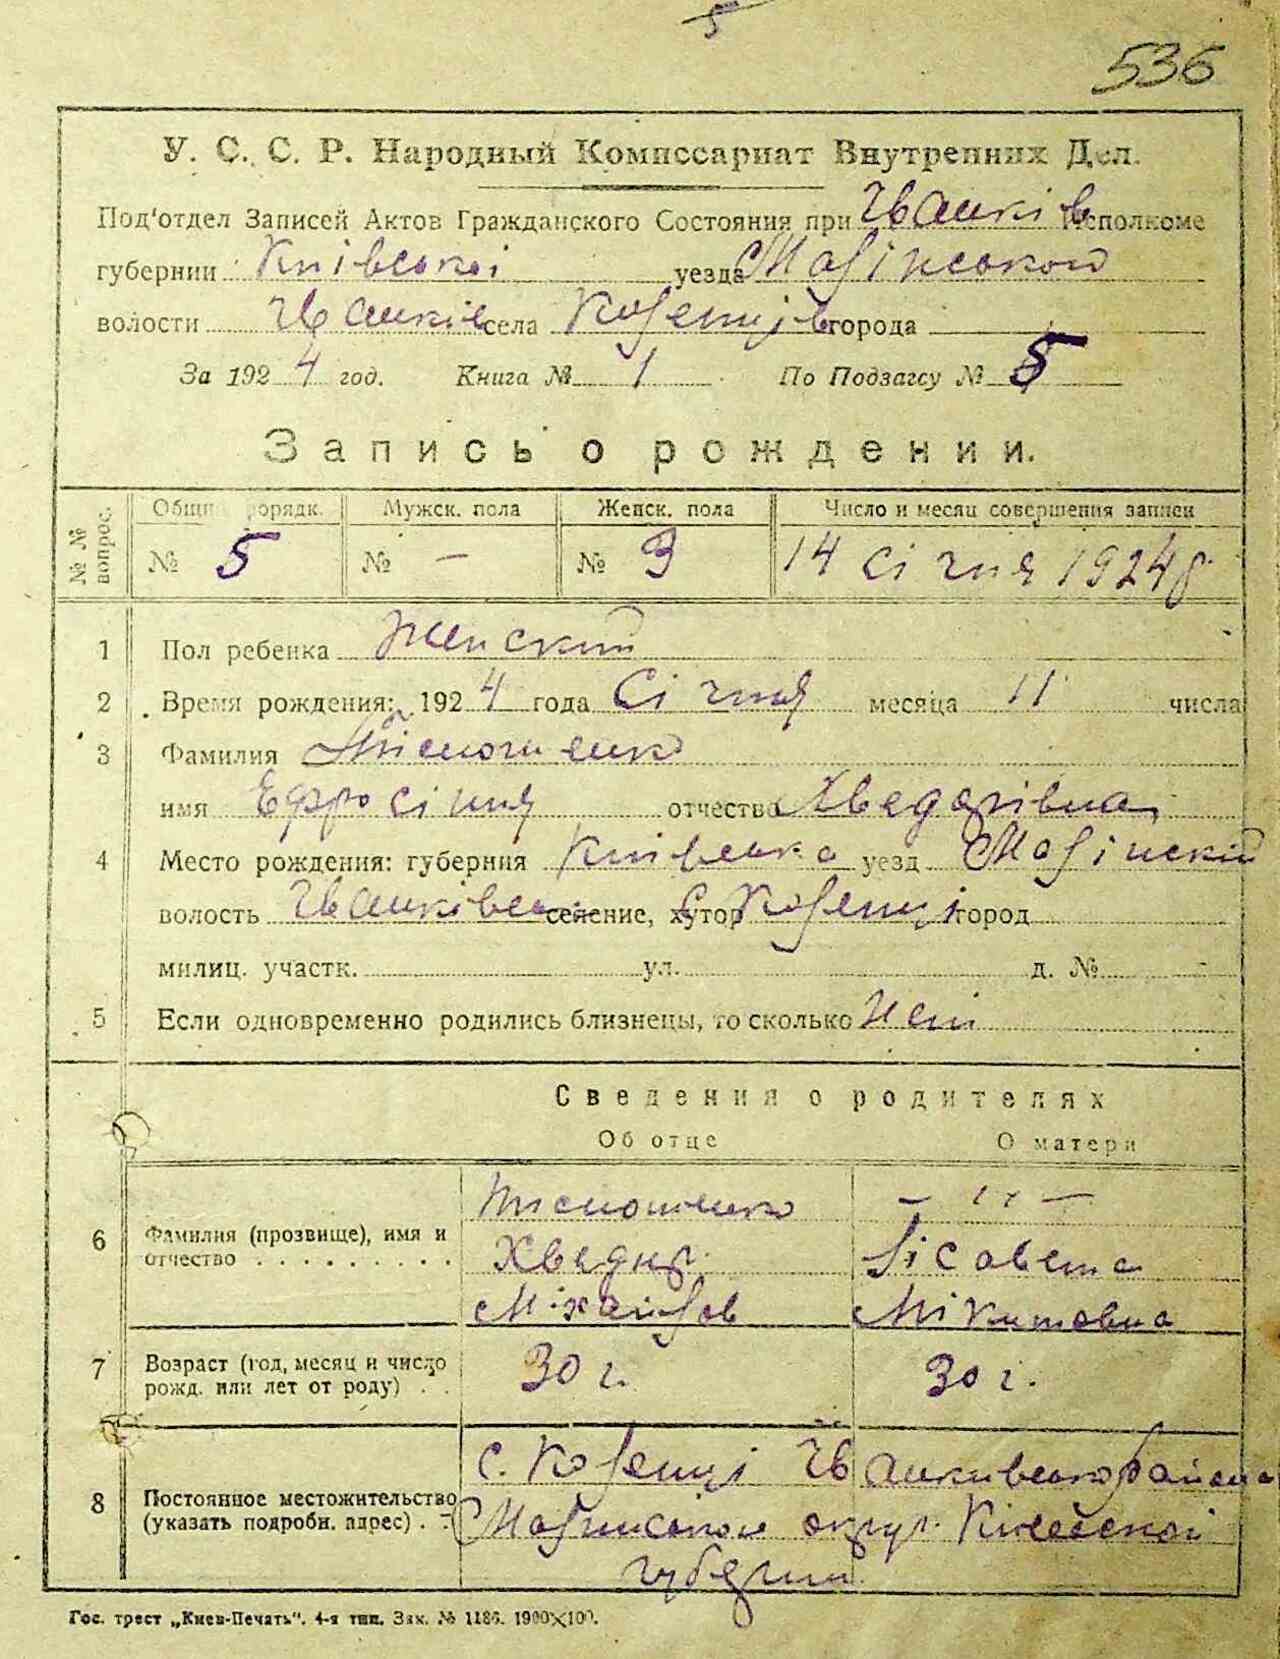 5
536
У. С. С. Р. Народный Комиссариат Внутренних Дел.
Под'отдел Записей Актов Гражданского Состояния при Іванків Исполкоме
губернии Київської уезда Малінської
волости Іванків села Коленців города
За 1924 год. Книга № 1 По Подзагсу № 5
Запись о рождении.
№ № вопрос. Общи порядк. Мужск. пола Женск. пола Число и месяц совершения записи
№ 5 № — № 3 14 січня 1924 г.
1 Пол ребенка Женский
2 Время рождения: 1924 года Січня месяца 11 числа
3 Фамилия
имя Ефросіния отчество Хведорівна
4 Место рождения: губерния Київська уезд Малінский
волость Іванківська селение, хутор с. Коленці город
милиц. участк. ул. д. №
5 Если одновременно родились близнецы, то сколько нет
Сведения о родителях
Об отце О матери
6 Фамилия (прозвище), имя и отчество
— ,, —
Хведир Лісавета
Міхайлов Мікитовна
7 Возраст (год, месяц и число рожд. или лет от роду) 30 г. 30 г.
8 Постоянное местожительство (указать подробн. адрес)
с. Коленці Іванківського района
округ. Київської
губернии
Гос. трест „Киев-Печать". 4-я тип. Зак. № 1186. 1900×100.